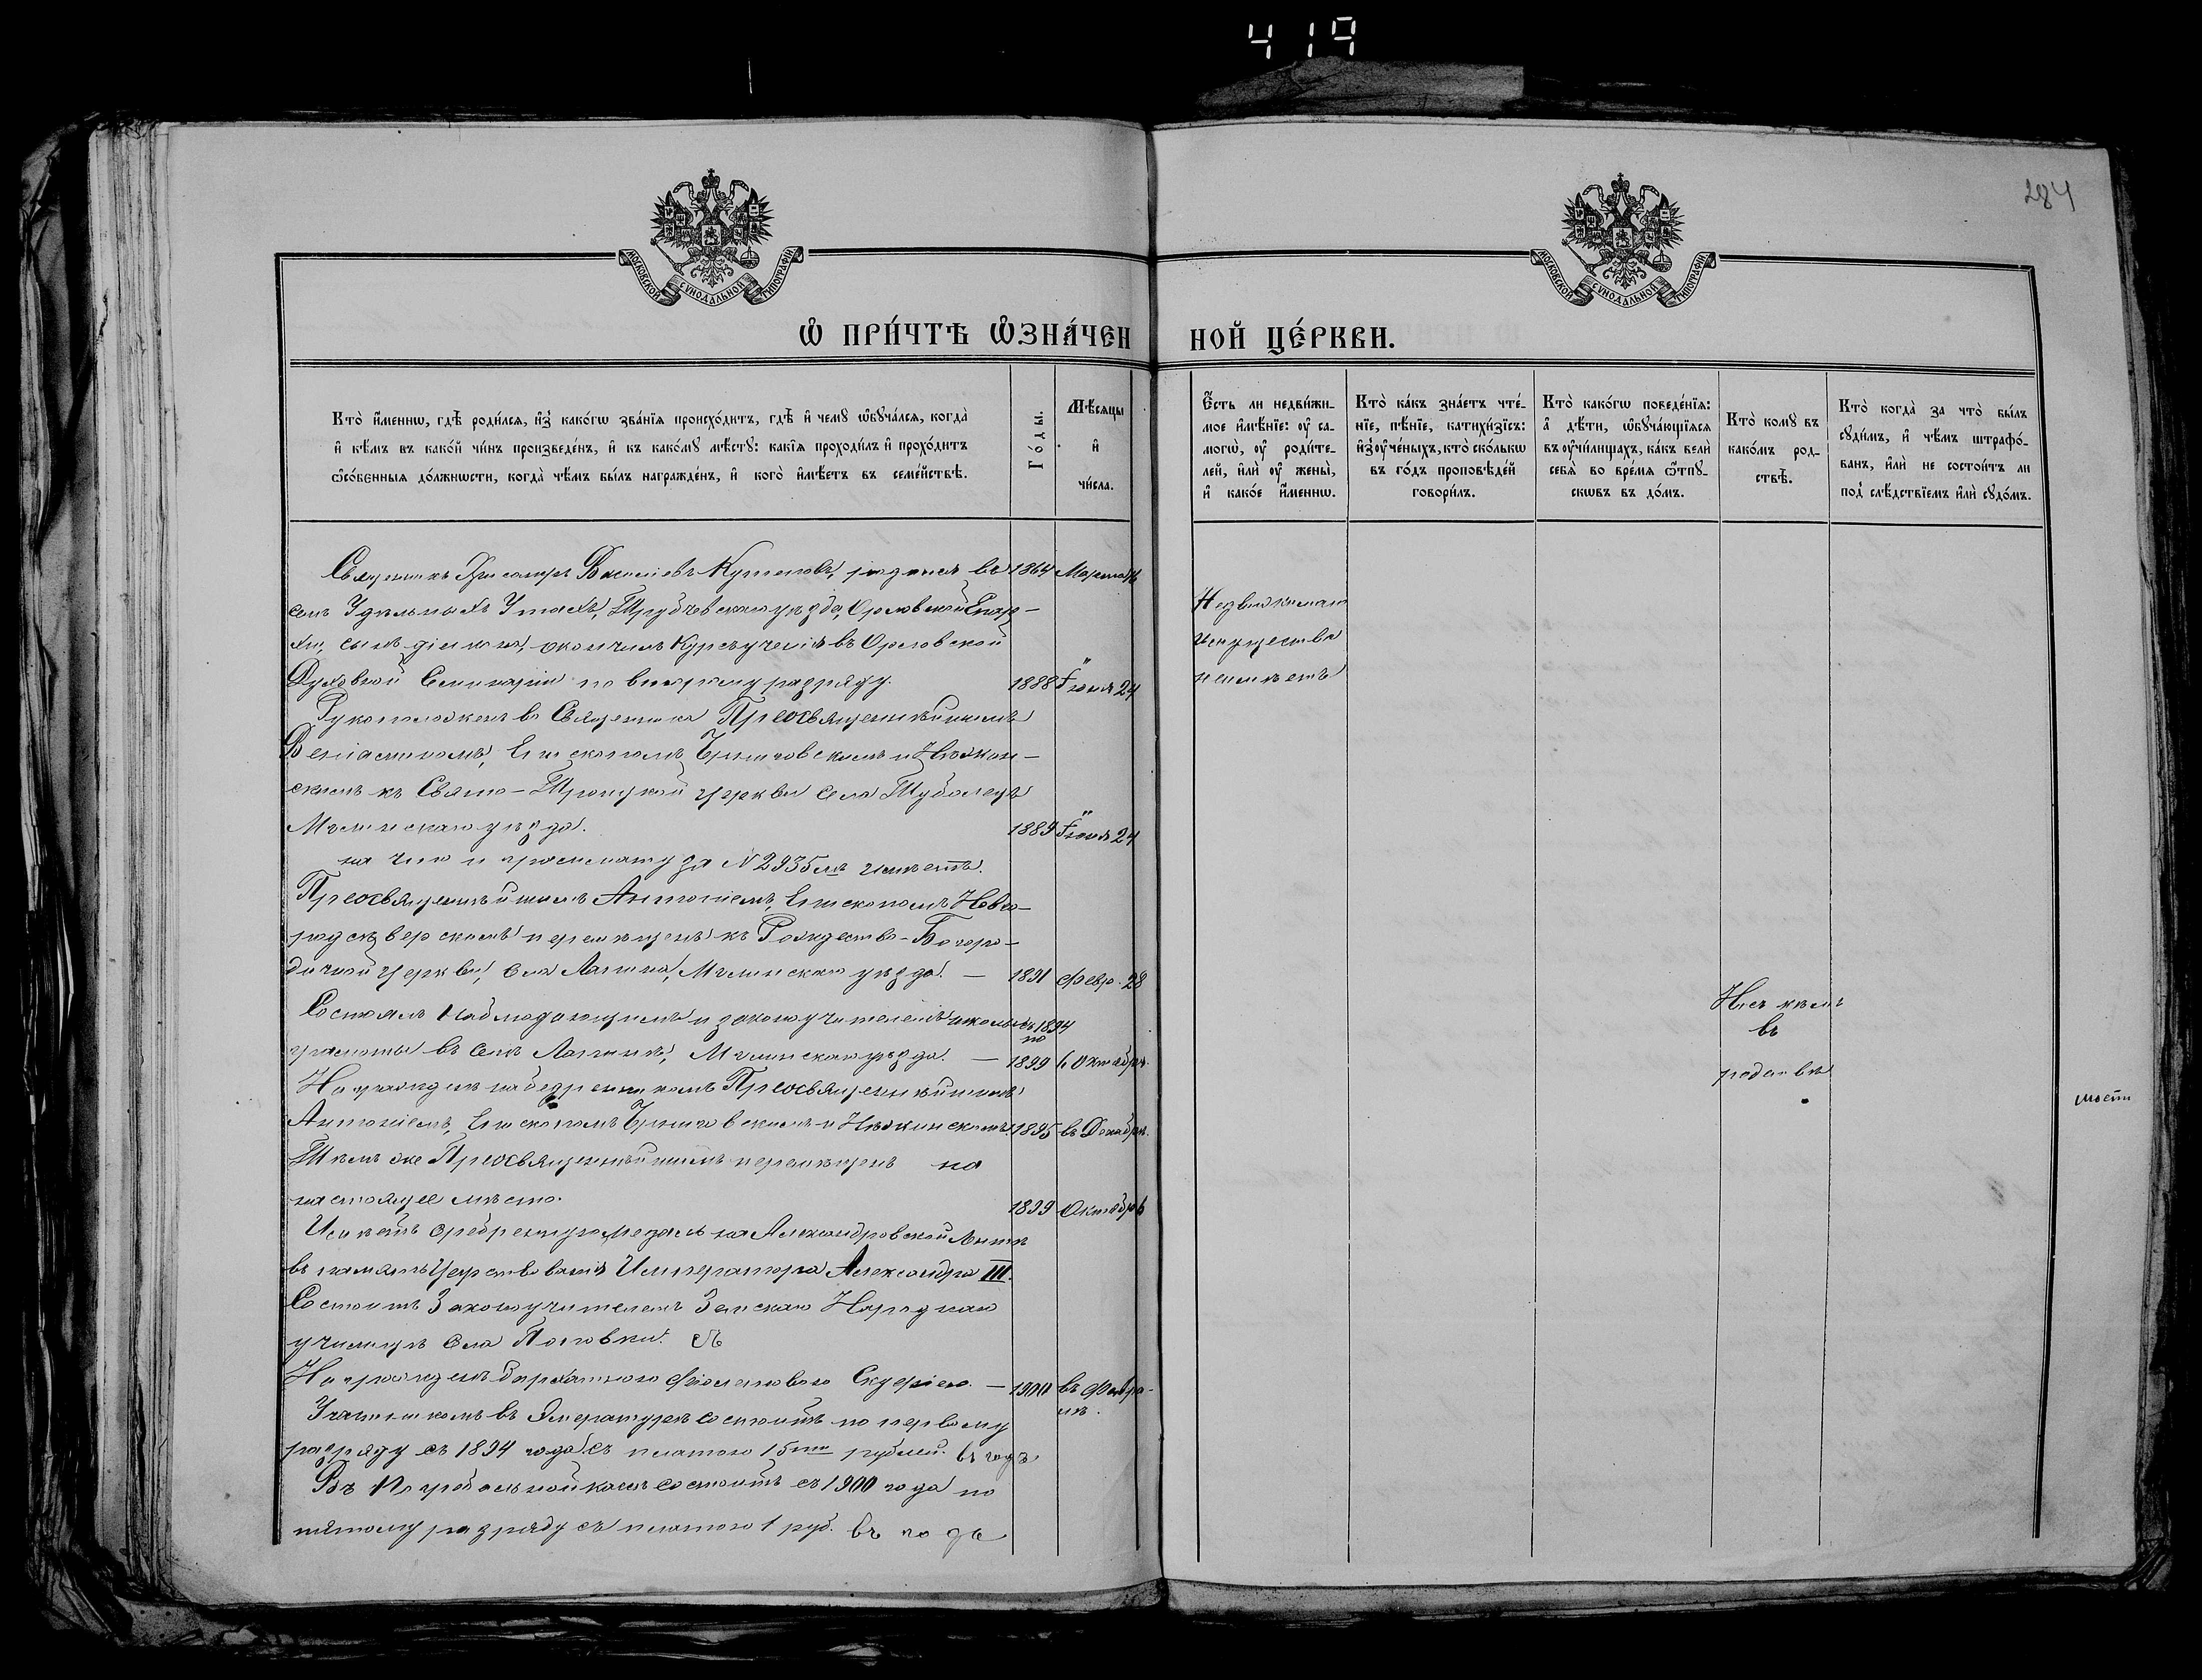 419
284
МОСКОВСКОЙ СѴНОДАЛЬНОЙ ТИПОГРАФІИ
МОСКОВСКОЙ СѴНОДАЛЬНОЙ ТИПОГРАФІИ
Ѡ ПРИ́ЧТѢ ѠЗНА́ЧЕННОЙ ЦЕ́РКВИ.
Кто̀ и҆́меннѡ, гдѣ̀ роди́лся, и҆з̾ како́гѡ зва́нїя происхо́дитъ, гдѣ̀ и҆ чемꙋ̀ ѡ҆бꙋча́лся, когда̀
и҆ кѣ́мъ въ како́й чи́нъ произведе́нъ, и҆ къ како́мꙋ мѣ́стꙋ: какі̑я проходи́лъ и҆ прохо́дитъ
ѡ҆со́бенныя до́лжнѡсти, когда̀ чѣ́мъ бы́лъ награжде́нъ, и҆ кого̀ и҆мѣ́етъ въ семе́йствѣ.
Го́ды.
Мѣ́сяцы
и҆
чи́сла.
Є҆́сть ли недви́жи-
мое и҆мѣ́нїе: оу҆ са-
могѡ̀, оу҆ роди́те-
лей, и҆лѝ оу҆ жены̀,
и҆ како́е и҆́меннѡ.
Кто̀ ка́къ зна́етъ чте́-
нїе, пѣ́нїе, катихи́зїсъ:
и҆з̾ оу҆че́ныхъ, кто̀ ско́лькѡ
въ го́дъ проповѣ́дей
говори́лъ.
Кто̀ како́гѡ поведе́нїя:
а҆ дѣ́ти, ѡ҆бꙋча́ющїяся
въ оу҆чи́лищахъ, ка́къ велѝ
себя̀ во вре́мя ѿпꙋ-
скѡвъ въ до́мъ.
Кто̀ комꙋ̀ въ
како́мъ род-
ствѣ̀.
Кто̀ когда̀ за что̀ бы́лъ
сꙋди́мъ, и҆ чѣ́мъ штрафо́-
ванъ, и҆лѝ не состои́тъ ли
под̾ слѣ́дствїемъ и҆лѝ сꙋдо́мъ.
Священникъ Васильевъ родился въ 1864 Марта
селѣ Удѣльныхъ Утахъ, Трубчевскаго уѣзда, Орловской Епар-
хіи, сынъ діакона, окончилъ Курсъ ученія въ Орловской
Духовной Семинаріи по второму разряду. 1888 Іюня 24
Рукоположенъ во Священника Преосвященнѣйшимъ
Веніаминомъ, Епископомъ Черниговскимъ и Нѣжин-
скимъ къ Свято-Троицкой церкви села Тубольцъ
Мглинскаго уѣзда. 1889 Іюня 24
на что и грамматту за № 2935мъ имѣетъ.
Преосвященнѣйшимъ Антоніемъ, Епископомъ Новго-
родсѣверскимъ перемѣщенъ къ Рождество-Богоро-
дичной церкви, села Мглинскаго уѣзда. — 1891 Февр. 28
Состоялъ Наблюдающимъ и законоучителемъ школы съ 1894
по
грамоты въ селѣ Мглинскаго уѣзда. — 1899 6 Октября.
Награжденъ набедренникомъ Преосвященнѣйшимъ
Антоніемъ, Епископомъ Черниговскимъ и Нѣжинскимъ. 1895 въ Декабрѣ.
Тѣмъ же Преосвященнѣйшимъ перемѣщенъ на
настоящее мѣсто. 1899 Октября 6
Имѣетъ серебренную медаль на Александровской лентѣ
въ память Царствованія Императора Александра III.
Состоитъ Законоучителемъ Земскаго Народнаго
училища села
Награжденъ бархатною фіолетовою Скуфіею. — 1900 въ Февра-
лѣ.
Участникомъ въ Эмеритурѣ состоитъ по первому
разряду съ 1894 года съ платою 15тю рублей. въ годъ
Въ Погребальной кассѣ состоитъ съ 1900 года по
пятому разряду съ платою 1 руб. въ годъ
Недвижимаго
имущества
неимѣетъ
Ни съ кѣмъ
въ
родствѣ